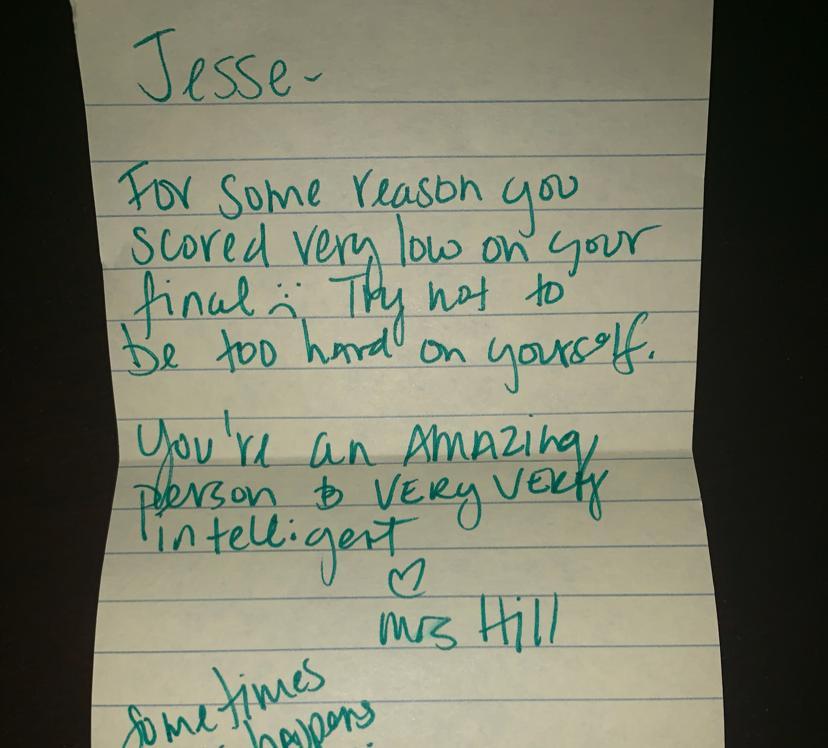 Jesse-
For some reason you
scored very low on your
final :( Try not to
be too hard on yourself.
You're an AMAZing
person & VERy VERy
intelligent
♡
Mrs Hill
Sometimes
happens